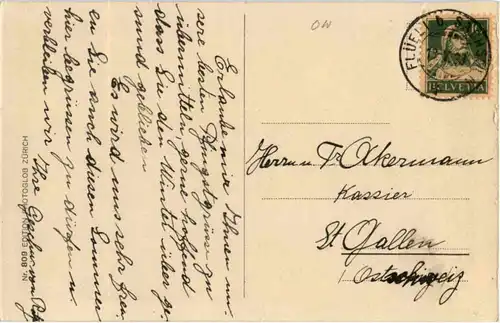 Erlaube mir Ihnen un-
sere besten Pfingstgrüsse zu
übermitteln, gern hoffend
dass Sie den Winter über ge-
sund geblieben
Es wird uns sehr freu-
en Sie auch diesen Sommer
hier begrüssen zu dürfen u.
verbleiben wir
Ihre
Nr. 809 EDITION PHOTOGLOB ZÜRICH
OW
FLÜEL
HELVETIA
Herrn u. Fr Ackermann
Kassier
St Gallen
Ostschweiz